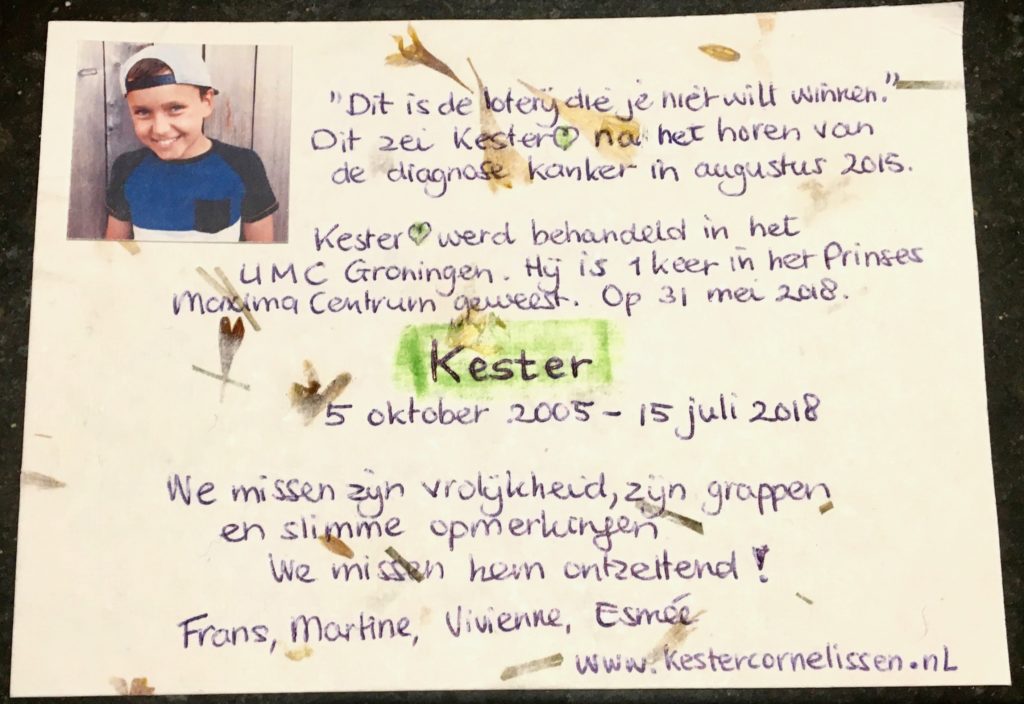 "Dit is de loterij die je niet wilt winnen."
Dit zei Kester♡ na het horen van
de diagnose kanker in augustus 2015.
Kester♡ werd behandeld in het
UMC Groningen. Hij is 1 keer in het Prinses
Maxima Centrum geweest. Op 31 mei 2018.
Kester
5 oktober 2005 - 15 juli 2018
We missen zijn vrolijkheid, zijn grappen
en slimme opmerkingen
We missen hem ontzettend!
Frans, Martine, Vivienne, Esmée
www.kestercornelissen.nl